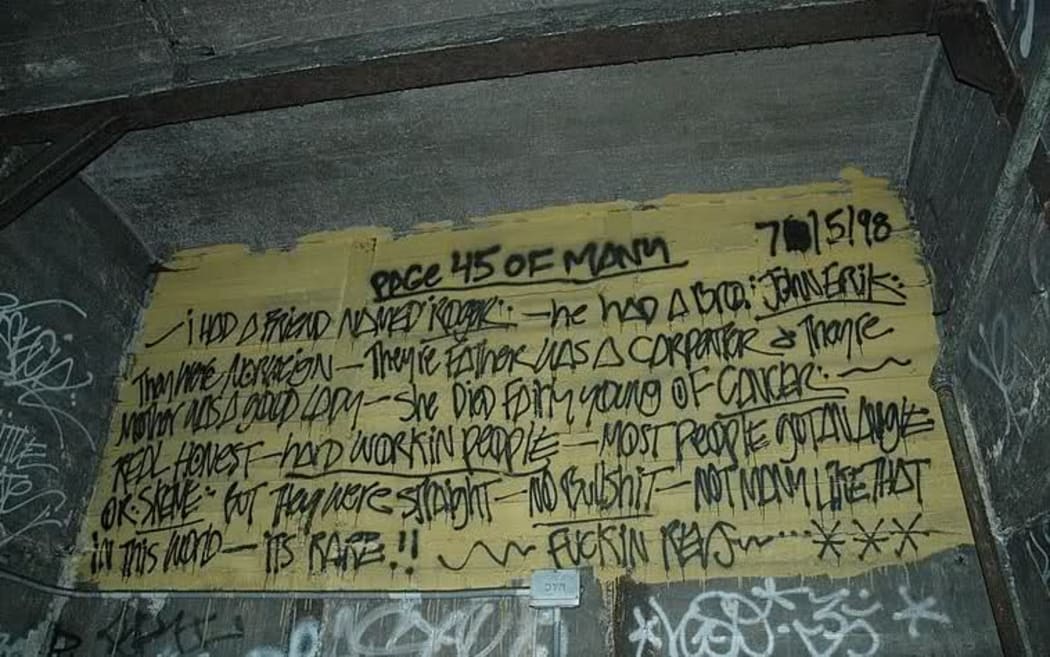 PAGE 45 OF MANY
7/5/98
– i HAD A FRIEND NAMED ROGER: – he HAD A BRO: JOHN ERIK:
They Were NORWEIGN – They're FATHER WAS A CARPENTER & They're
Mother WAS A GOOD LADY – She DiED FAiRly young OF CANCER: ~
REAL HONEST – HARD WORKIN PEOPLE – MOST PEOPLE GOT AN ANGLE:
OR: SKEME: BUT They Were straight – NO BullshiT – NOT MANY LIKE THAT
IN THIS WORLD – iTS RARE!! ~ FUCKIN REVS ~ ... ***